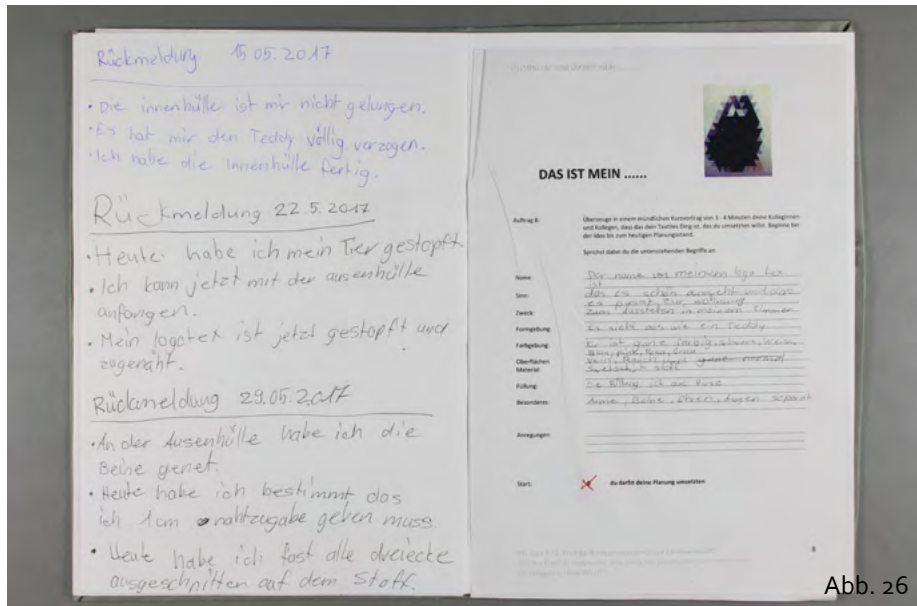 Rückmeldung 15.05.2017
• Die innenhülle ist mir nicht gelungen.
• Es hat mir den Teddy völlig verzogen.
• Ich habe die innenhülle fertig.
Rückmeldung 22.5.2017
• Heute habe ich mein Tier gestopft
• Ich kann jetzt mit der ausenhülle
anfangen.
• Mein logotex ist jetzt gestopft und
zugenäht.
Rückmeldung 29.05.2017
• An der Ausenhülle habe ich die
Beine genet.
• Heute habe ich bestimmt das
ich 1cm nahtzugabe geben muss.
• Heute habe ich fast alle dreiecke
ausgeschnitten auf dem Stoff.
DAS IST MEIN ......
Auftrag B: Überzeuge in einem mündlichen Kurzvortrag von 3 - 4 Minuten deine Kolleginnen
und Kollegen, dass das dein Textiles Ding ist, das du umsetzten willst. Beginne bei
der Idee bis zum heutigen Planungsstand.
Sprichst dabei du die untenstehenden Begriffe an:
Name: Der name von meinem logo tex
ist
Sinn: das es schön aussieht und das
es passt zur wohnung
Zweck: Zum Ausstellen in meinem Zimmer
Formgebung: Es sieht aus wie ein Teddy
Farbgebung: Er ist ganz farbig, schwarz, weiss,
Oberflächen
Material:
Füllung: Die füllung ist aus
Besonderes: Arme, Beine, Ohren, Augen separat
Anregungen:
Start: du darfst deine Planung umsetzten
8
Abb. 26